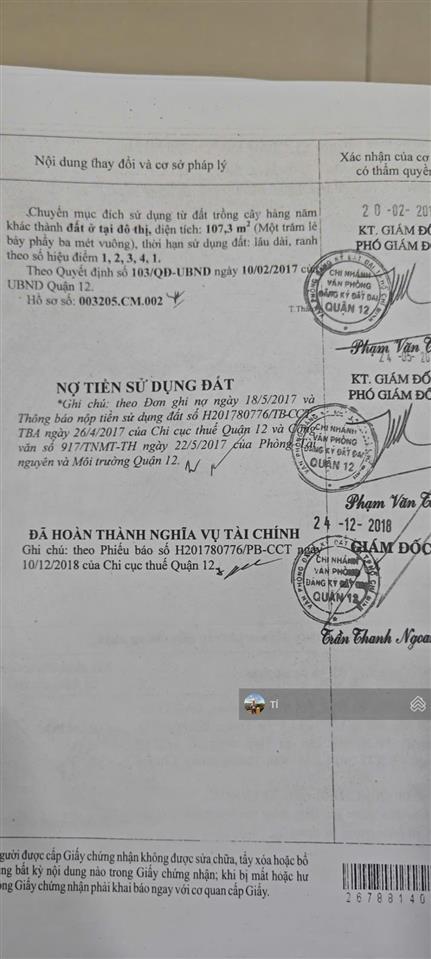 Nội dung thay đổi và cơ sở pháp lý
Xác nhận của cơ
có thẩm quyề
Chuyển mục đích sử dụng từ đất trồng cây hàng năm
khác thành đất ở tại đô thị, diện tích: 107,3 m² (Một trăm lẻ
bảy phẩy ba mét vuông), thời hạn sử dụng đất: lâu dài, ranh
theo số hiệu điểm 1, 2, 3, 4, 1.
Theo Quyết định số 103/QĐ-UBND ngày 10/02/2017 của
UBND Quận 12.
Hồ sơ số: 003205.CM.002
20-02-201
KT. GIÁM ĐỐ
PHÓ GIÁM Đ
CHI NHÁNH
VĂN PHÒNG
ĐĂNG KÝ ĐẤT ĐAI
QUẬN 12
Phạm Văn T
NỢ TIỀN SỬ DỤNG ĐẤT
*Ghi chú: theo Đơn ghi nợ ngày 18/5/2017 và
Thông báo nộp tiền sử dụng đất số H201780776/TB-CCT-
TBA ngày 26/4/2017 của Chi cục thuế Quận 12 và Công
văn số 917/TNMT-TH ngày 22/5/2017 của Phòng Tài
nguyên và Môi trường Quận 12.
24-05-201
KT. GIÁM ĐỐ
PHÓ GIÁM ĐỐ
CHI NHÁNH
VĂN PHÒNG
ĐĂNG KÝ ĐẤT ĐAI
QUẬN 12
Phạm Văn T
ĐÃ HOÀN THÀNH NGHĨA VỤ TÀI CHÍNH
Ghi chú: theo Phiếu báo số H201780776/PB-CCT ngày
10/12/2018 của Chi cục thuế Quận 12
24-12-2018
GIÁM ĐỐC
CHI NHÁNH
VĂN PHÒNG
ĐĂNG KÝ ĐẤT ĐAI
QUẬN 12
Trần Thanh Ngoa
TÍ
gười được cấp Giấy chứng nhận không được sửa chữa, tẩy xóa hoặc bổ
ng bất kỳ nội dung nào trong Giấy chứng nhận; khi bị mất hoặc hư
ng Giấy chứng nhận phải khai báo ngay với cơ quan cấp Giấy.
26788140